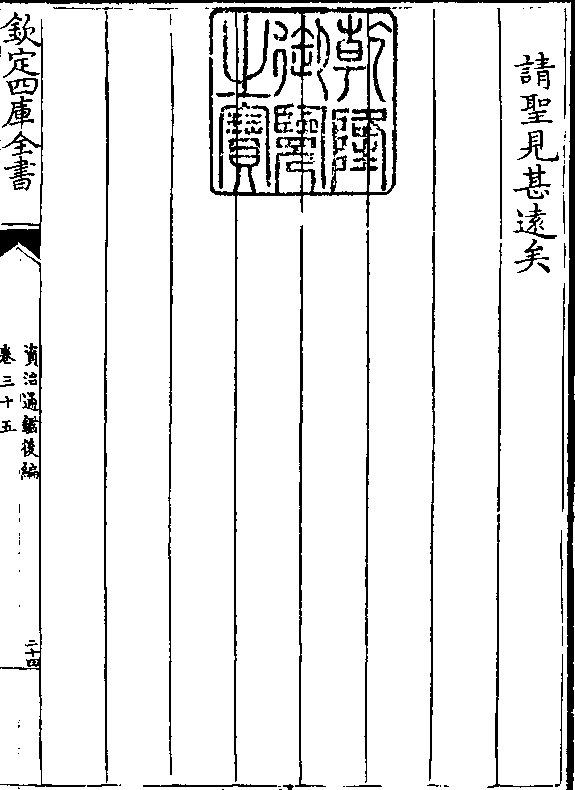 請聖見甚遠矣
乾隆御覽之寶
欽定四庫全書
資治通鑑後編
卷三十五
二十四